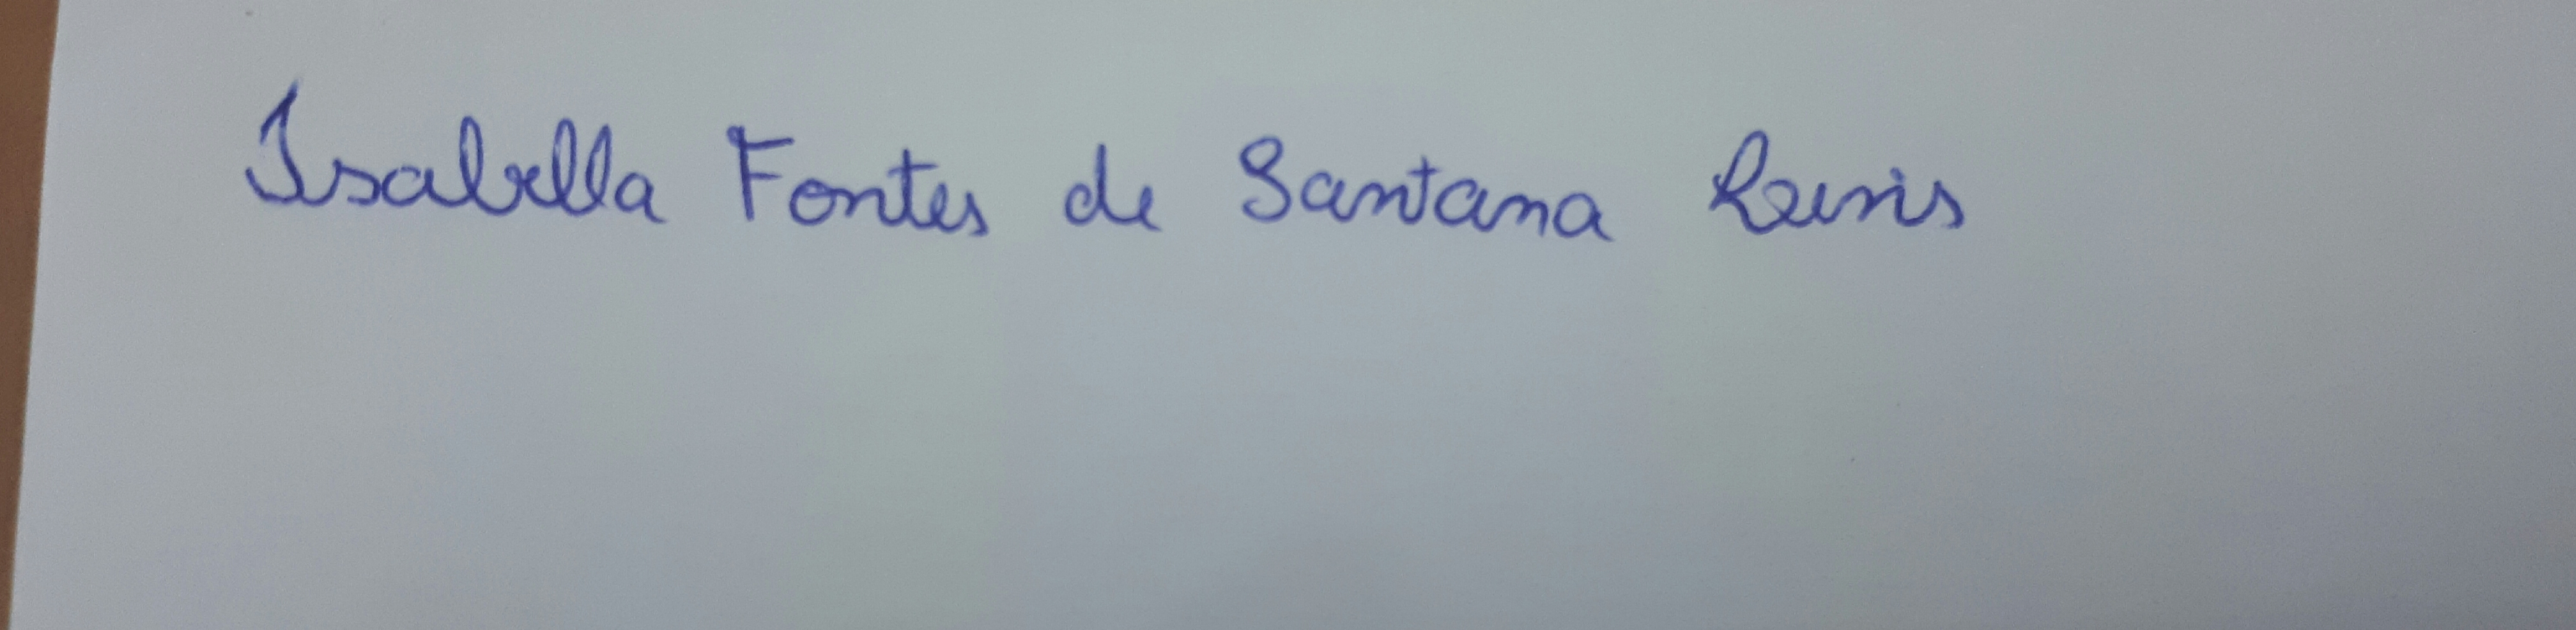 Isabella Fontes de Santana